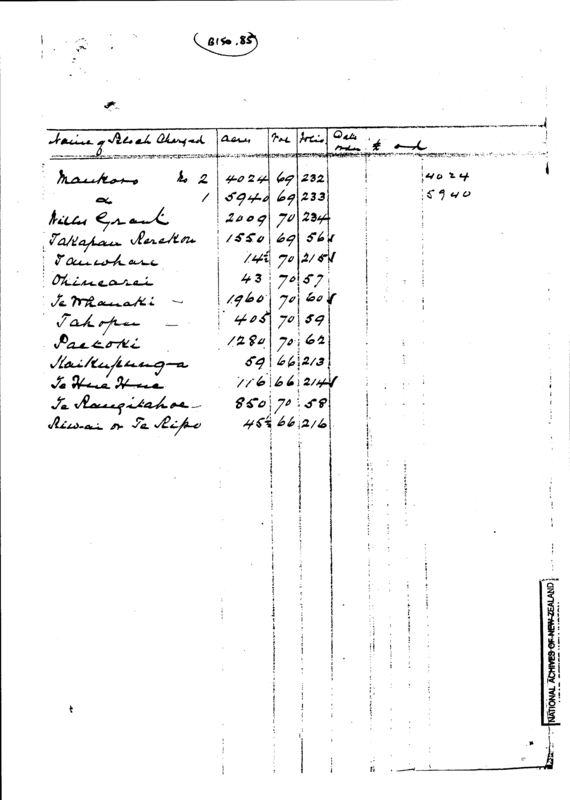 B150.85
Name of Block Charged acres Vol folio Date
order £ and
No 2 4024 69 232 4024
1 5940 69 233 5940
Grant 2009 70 234
Takapau 1550 69 56
Tauwhare 14½ 70 215
43 70 57
Te Whanaki – 1960 70 60
Tahopu – 405 70 59
Paetoki 1280 70 62
Kaikupunga 59 66 213
Te Hue Hue 116 66 214
Te Rangitahoe – 850 70 58
Riwai or Te Ripo 45½ 66 216
NATIONAL ACHIVES OF NEW ZEALAND